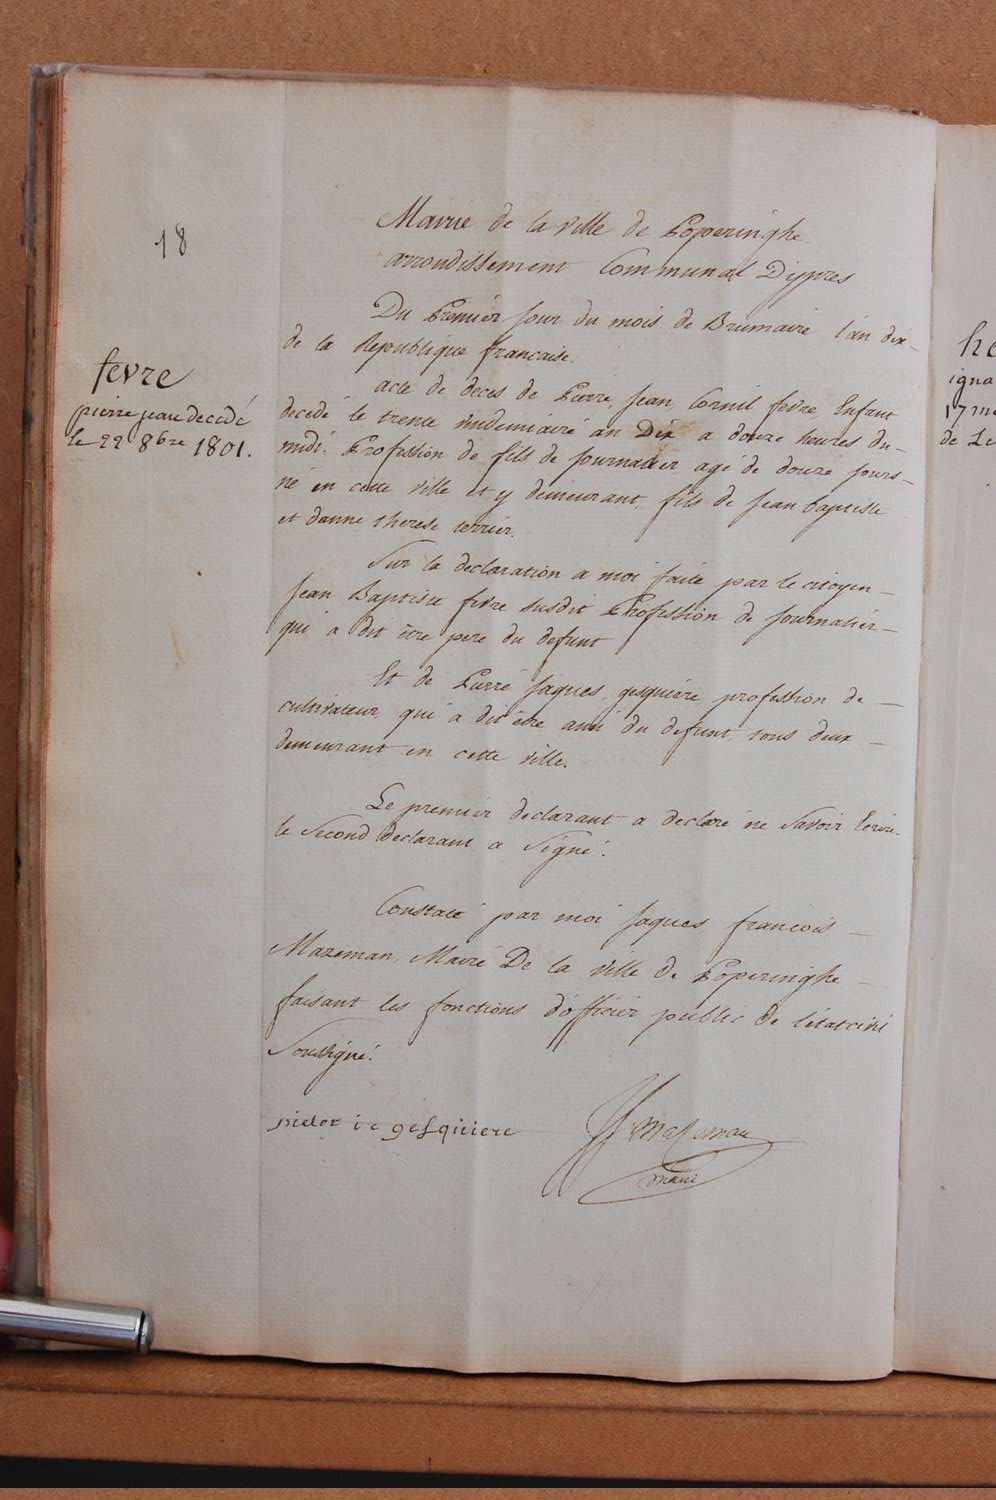 18
Mairie de la ville de Poperinghe
arrondissement Communal Dijpres
Du Premier Jour du mois de Brumaire l'an dix
de la Republique francaise.
fevre
pierre jean decedé
le 22 8bre 1801.
acte de deces de Pierre Jean Cornil fevre Enfant
decedé le trente vindemiaire an Dix a douze heures du
midi. Profession de fils de Journalier agé de douze jours
né en cette ville et y demeurant, fils de Jean baptiste
et danne therese terrier.
Sur la declaration a moi faite par le citoyen
Jean Baptiste fevre susdit Profession de Journalier
qui a dit être pere du defunt
Et de Pierre Jaques gesquiere profession de
cultivateur, qui a dit être ami du defunt tous deux
demeurant en cette ville.
Le premier declarant a declaré ne Savoir Ecrire.
le Second declarant a Signé.
Constaté par moi Jaques francois
Mazeman, Maire De la ville de Poperinghe
faisant les fonctions d'officier public de l'état civil
Soussigné.
gesquiere
Mazeman
maire
he
igna
17 m
de Le